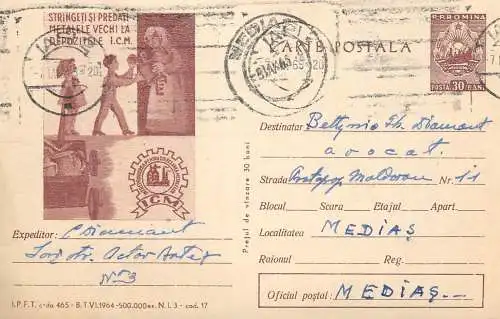 STRÎNGEȚI ȘI PREDAȚI
METALELE VECHI LA
DEPOZITELE I.C.M.
ICM
CARTE POSTALA
R.P. ROMINA
POSTA 30 BANI
MEDIAȘ
Destinatar Diamant
avocat.
Strada Moldovan Nr. 11
Blocul Scara Etajul Apart.
Localitatea MEDIAȘ
Raionul Reg.
Oficiul poștal: MEDIAȘ
Prețul de vînzare 30 bani
Expeditor: C Diamant
Iași str.
No 3
I.P.F.T. c-da 465 - B.T.VI.1964-500.000 ex. N.I. 3 - cod. 17